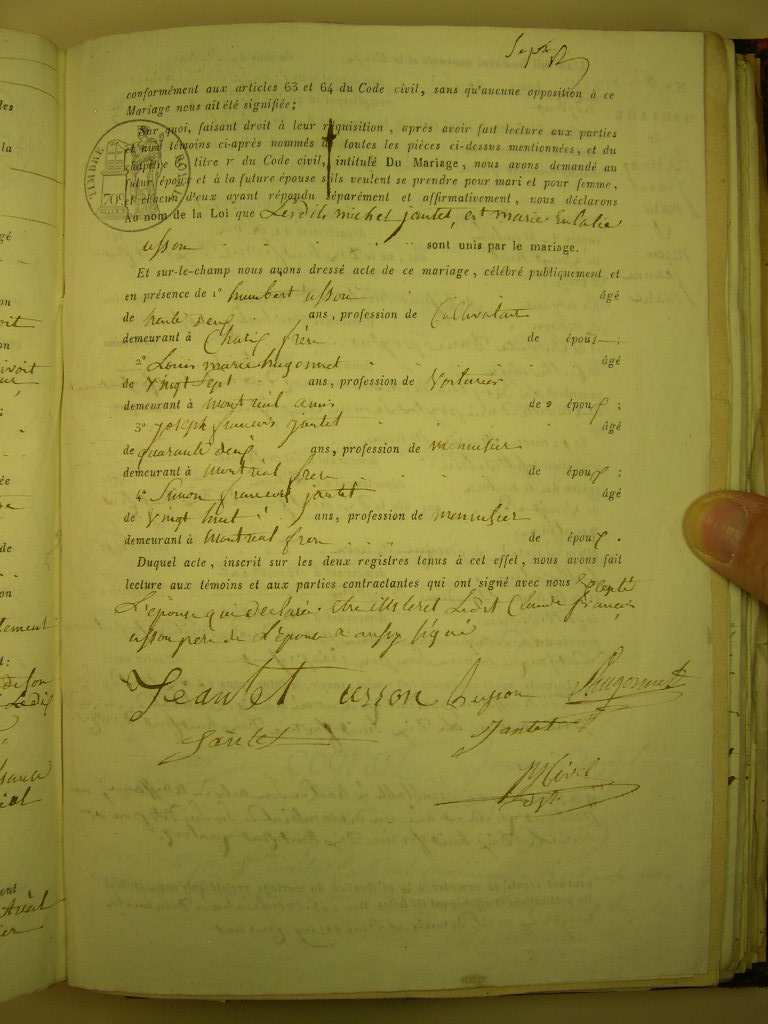 Sept
conformément aux articles 63 et 64 du Code civil, sans qu'aucune opposition à ce
Mariage nous ait été signifiée;
Sur quoi, faisant droit à leur réquisition, après avoir fait lecture aux parties
et aux témoins ci-après nommés de toutes les pièces ci-dessus mentionnées, et du
chapitre titre 1er du Code civil, intitulé Du Mariage, nous avons demandé au
futur époux et à la future épouse s'ils veulent se prendre pour mari et pour femme,
et chacun d'eux ayant répondu séparément et affirmativement, nous déclarons
TIMBRE
70c
Au nom de la Loi que Lesdits michel jantet, et marie Eulalie
usson sont unis par le mariage.
Et sur-le-champ nous avons dressé acte de ce mariage, célébré publiquement et
en présence de 1º humbert usson âgé
de trente deux ans, profession de Cultivateur
demeurant à frère de épouse;
2º Louis marie hugonnet âgé
de vingt sept ans, profession de Voiturier
demeurant à montréal amis de s époux;
3º joseph françois jantet âgé
de quarante deux ans, profession de menuisier
demeurant à montréal frère de époux;
4º Simon françois jantet âgé
de vingt huit ans, profession de menuisier
demeurant à montréal frère de époux.
Duquel acte, inscrit sur les deux registres tenus à cet effet, nous avons fait
lecture aux témoins et aux parties contractantes qui ont signé avec nous excepté
L'épouse qui declaré être illeteré Ledit Claude françois
usson père de L'épouse a aussy signé
Jeantet usson husson hugonnet
Jantet Jantet